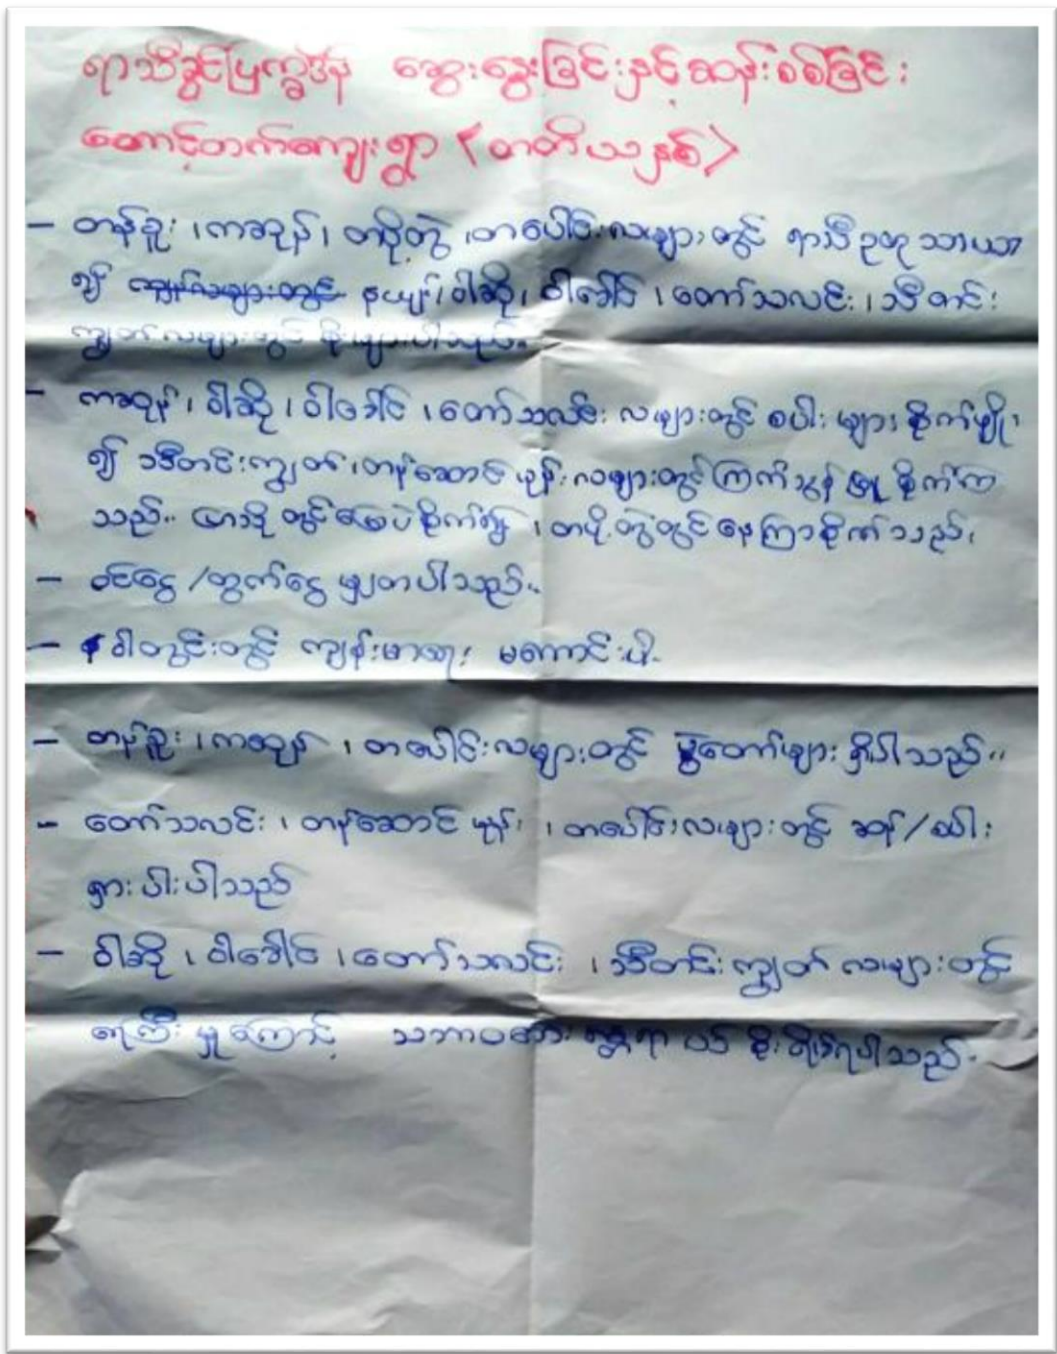 ရာသီခွင်ပြက္ခဒိန် ဆွေးနွေးခြင်းနှင့်ဆန်းစစ်ခြင်း
တောင့်တက်ကျေးရွာ (တတိယနှစ်)
- တန်ခူး၊ ကဆုန်၊ တပို့တွဲ၊ တပေါင်းလများတွင် ရာသီဥတုသာယာ
၍ နယုန်၊ ဝါဆို၊ ဝါခေါင်၊ တော်သလင်း၊ သီတင်း
ကျွတ်လများတွင် မိုးများပါသည်။
- ကဆုန်၊ ဝါဆို၊ ဝါခေါင်၊ တော်သလင်း လများတွင် စပါး များစိုက်ပျိုး
၍ သီတင်းကျွတ်၊ တန်ဆောင်မုန်းလများတွင်ကြက်သွန်ဖြူစိုက်ကြ
သည်။ တွင်မြေပဲစိုက်၍၊ တပို့တွဲတွင်နေကြာစိုက်သည်၊
- ဝင်ငွေ/ထွက်ငွေ မျှတပါသည်။
- ဝါတွင်းတွင် ကျန်းမာရေး မကောင်းပါ။
- တန်ခူး၊ ကဆုန်၊ တပေါင်းလများတွင် ပွဲတော်များ ရှိပါသည်။
- တော်သလင်း၊ တန်ဆောင်မုန်း၊ တပေါင်းလများတွင် ဆန်/စပါး
ရှားပါးပါသည်
- ဝါဆို၊ ဝါခေါင်၊ တော်သလင်း၊ သီတင်းကျွတ် လများတွင်
ရေကြီးမှုကြောင့် သဘာဝဘေးအန္တရာယ် စိုးရိမ်ရပါသည်။